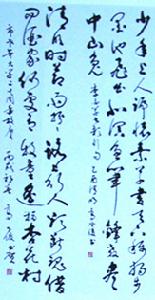 少年上人號懷素草書天下稱獨步
墨池飛出北溟魚筆鋒殺盡
中山兔
清明時節雨紛紛路上行人欲斷魂借
問酒家何處有牧童遙指杏花村